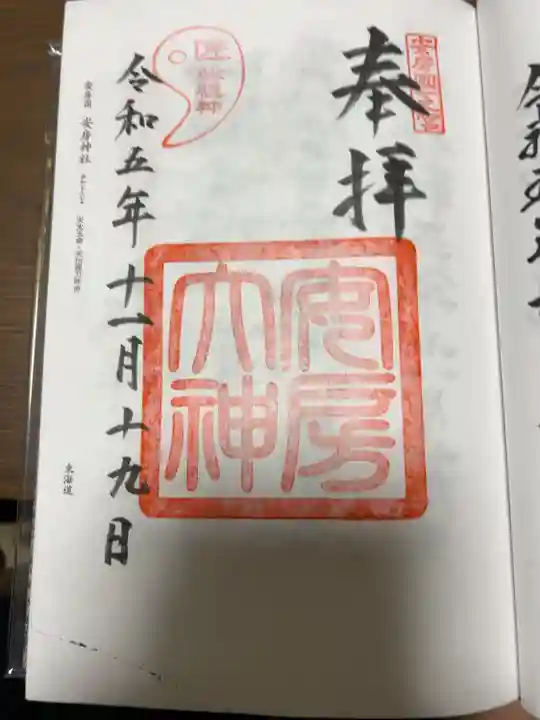 奉拝
安房国一之宮
安房大神
令和五年十一月十九日
安房国 安房神社
東海道